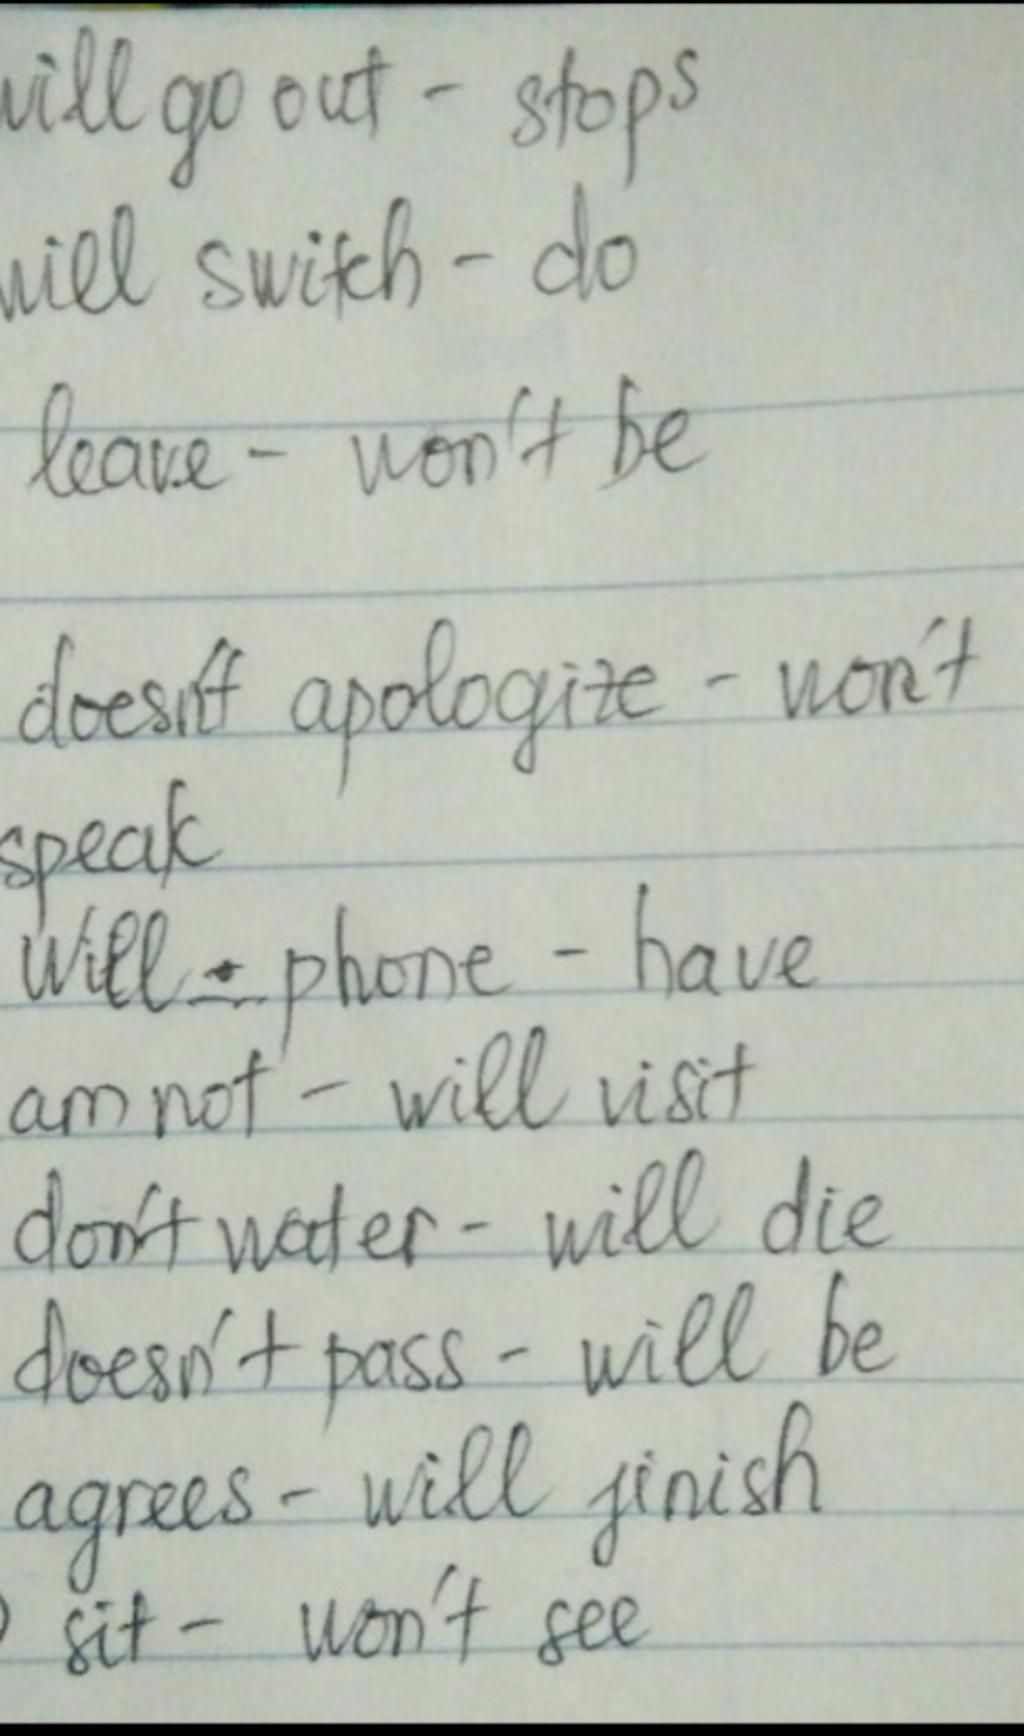 will go out - stops
will switch - do
leave - won't be
doesn't apologize - won't
speak
will - phone - have
am not - will visit
don't water - will die
doesn't pass - will be
agrees - will finish
) sit - won't see